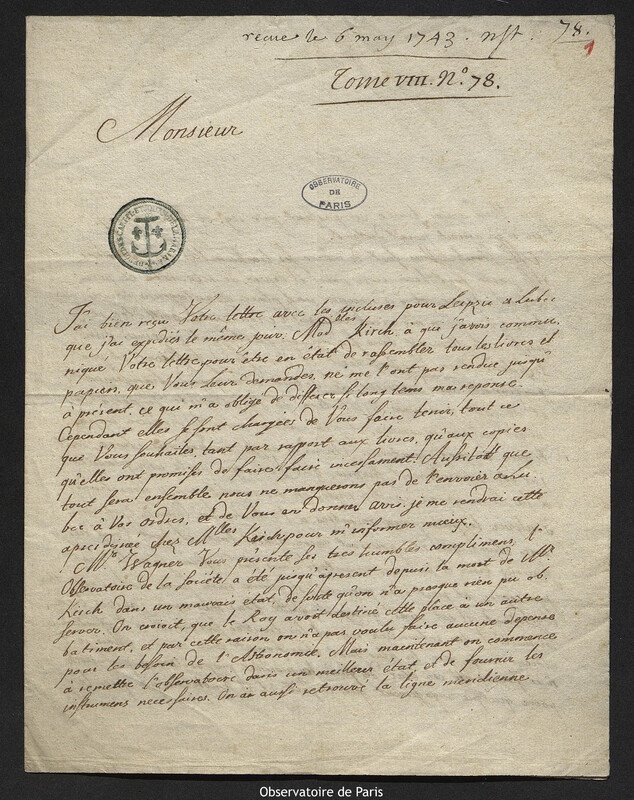 recue le 6 may 1743. nst.
78.
1
Tome VIII. N.º 78.
Monsieur
OBSERVATOIRE
DE
PARIS
J'ai bien reçu Votre lettre avec les incluses pour Leipzic & Lubec
que j'ai expediés le même jour. Mad.lles Kirch à que j'avois commu,
niqué Votre lettre pour être en état de rassembler tous les livres et
papiers, que Vous leur demandes, ne me l'ont pas rendue jusqu'
à présent, ce qui m'a obligé de differer si long tems ma reponse.
Cependant elles se sont chargées de Vous faire tenir, tout ce
que Vous souhaités, tant par rapport aux livres, qu'aux copies
qu'elles ont promises de faire faire incessament. Aussitôt que
tout sera ensemble nous ne manquerons pas de l'envoier a Lu,
bec à Vos ordres, et de Vous en donner avis. je me rendrai cette
apresdinée chez Mlles Kirch pour m'informer mieux.
Mr. Wagner Vous présente ses tres humbles complimens. l'
Observatoire de la Societé a été jusqu'apresent depuis la mort de Mr.
Kirch dans un mauvais état, de sorte qu'on n'a presque rien pu ob,
server. On croioit, que le Roy avoit destiné cette place à un autre
batiment, et par cette raison on n'a pas voulu faire aucune depense
pour les besoin de l'Astronomie. Mais maintenant on commence
à remettre l'observatoire dans un meilleur état, et de fournir les
instrumens necessaires. On a aussi retrouvé la ligne meridienne
Observatoire de Paris